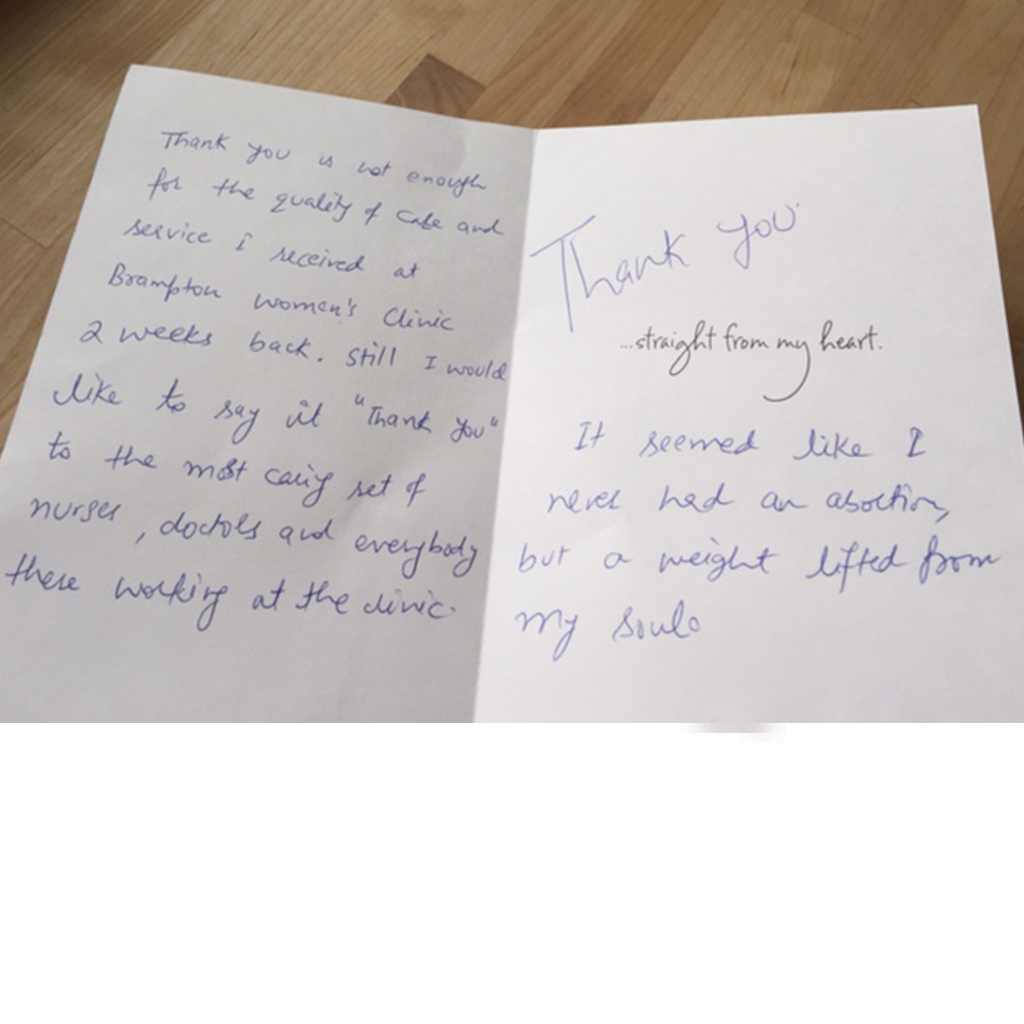 Thank you is not enough
for the quality of care and
service i received at
Brampton women's clinic
2 weeks back. Still I would
like to say it "Thank you"
to the most caring set of
nurses, doctors and everybody
there working at the clinic.
Thank you
...straight from my heart.
It seemed like I
never had an abortion,
but a weight lifted from
my soul.